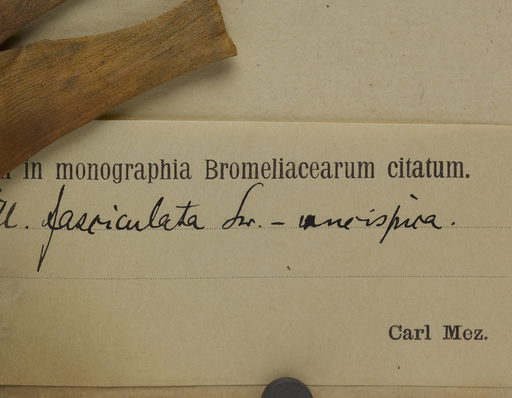 in monographia Bromeliacearum citatum.
fasciculata Sw. - uncispica.
Carl Mez.